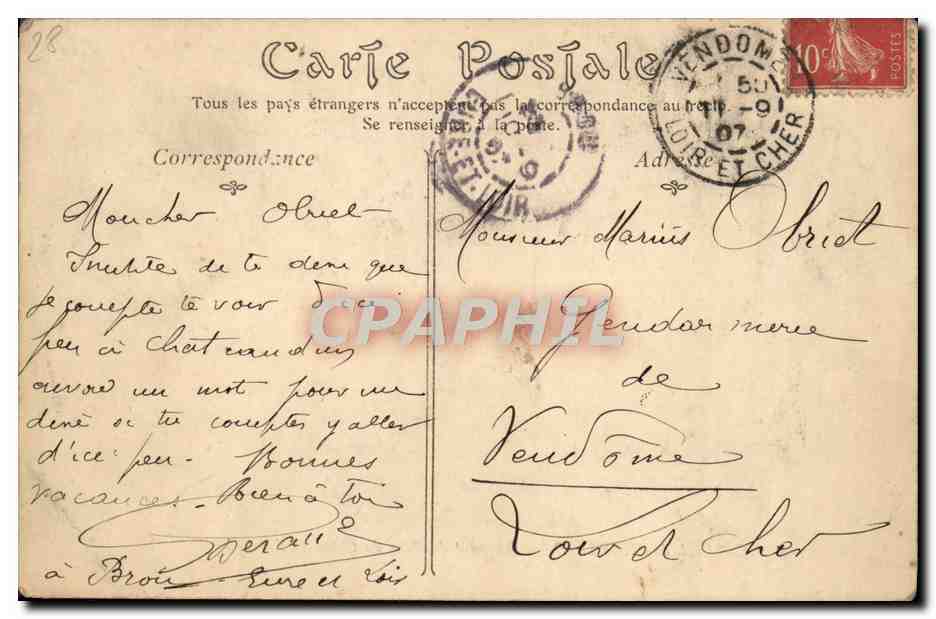 28
Carte Postale
Tous les pays étrangers n'acceptent pas la correspondance au recto.
Se renseigner à la poste.
Correspondance
Adresse
VENDOME
11 -9
07
LOIR ET CHER
EURE-ET-LOIR
10c
POSTES
Mon cher Obriet
Inutile de te dire que
je compte te voir d'ici
peu à Chateaudun
envoie un mot pour me
dire si tu comptes y aller
d'ici peu - Bonnes
vacances. Bien à toi
à Brou Eure et Loir
Monsieur Marius Obriet
Gendarmerie
de
Vendôme
Loir et Cher
CPAPHIL